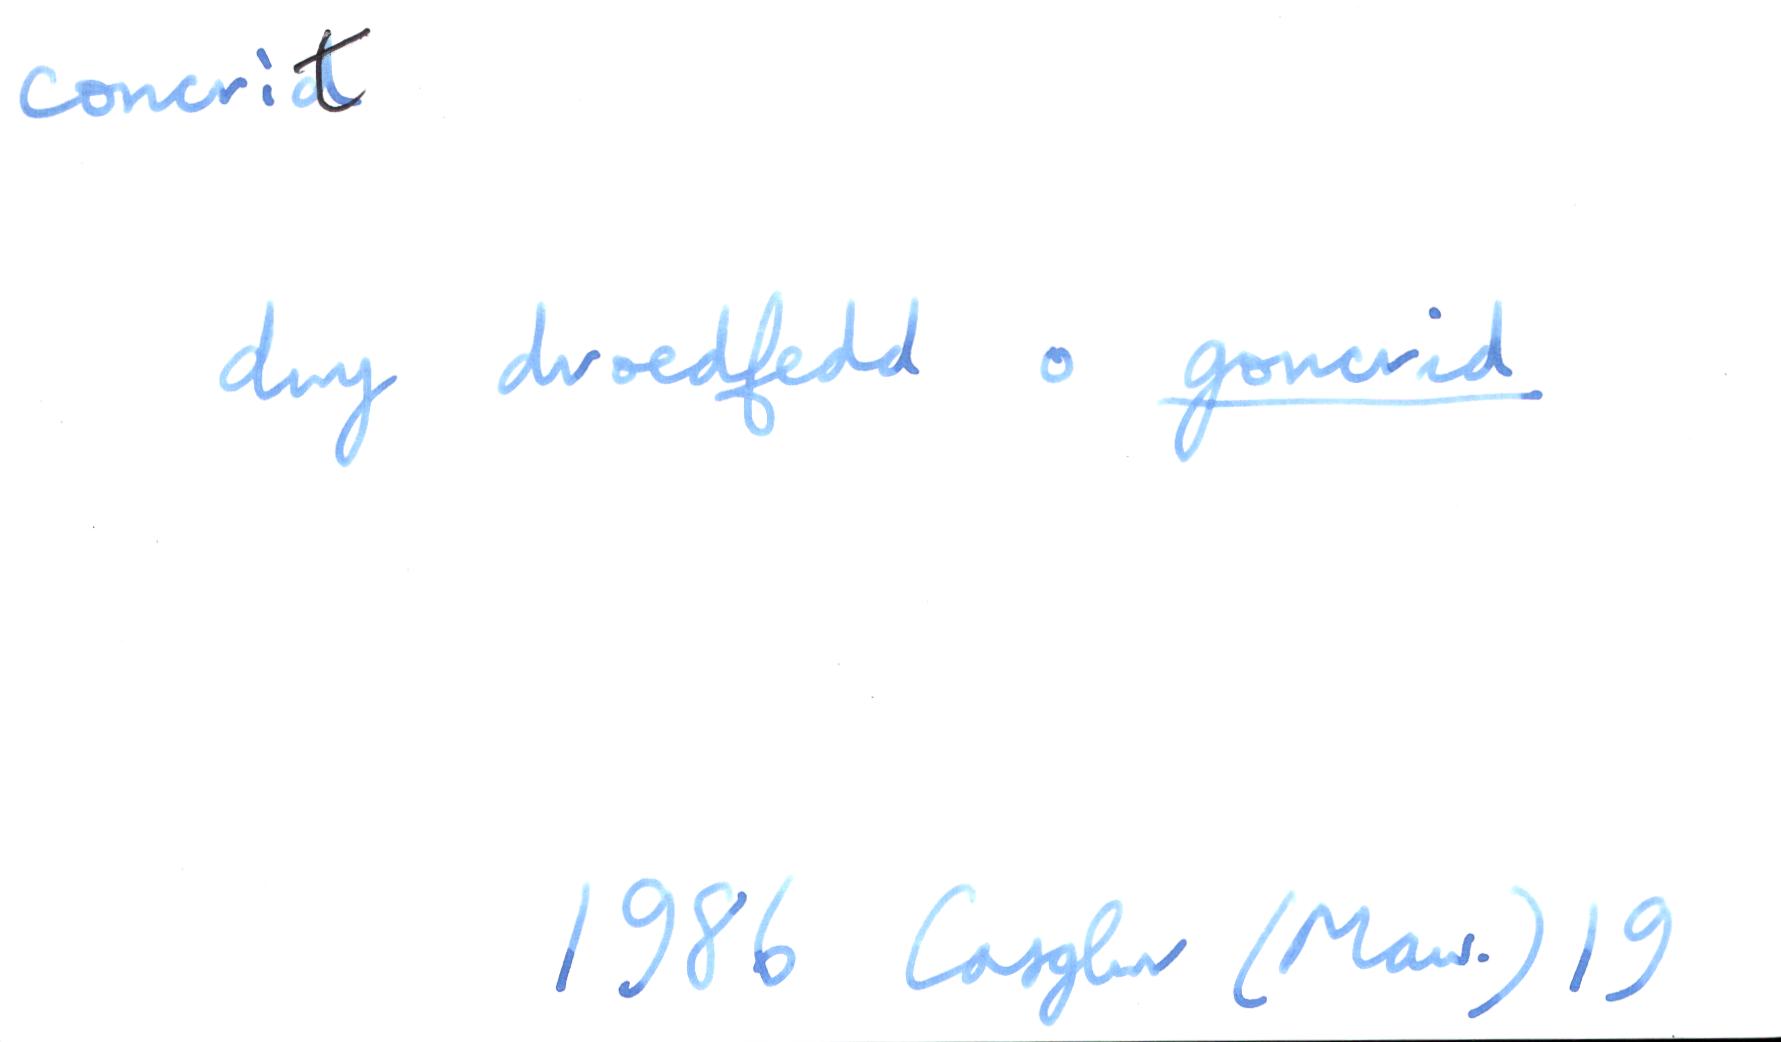 concrit
dwy droedfedd o goncrid
1986 Casglwr (Maw.) 19